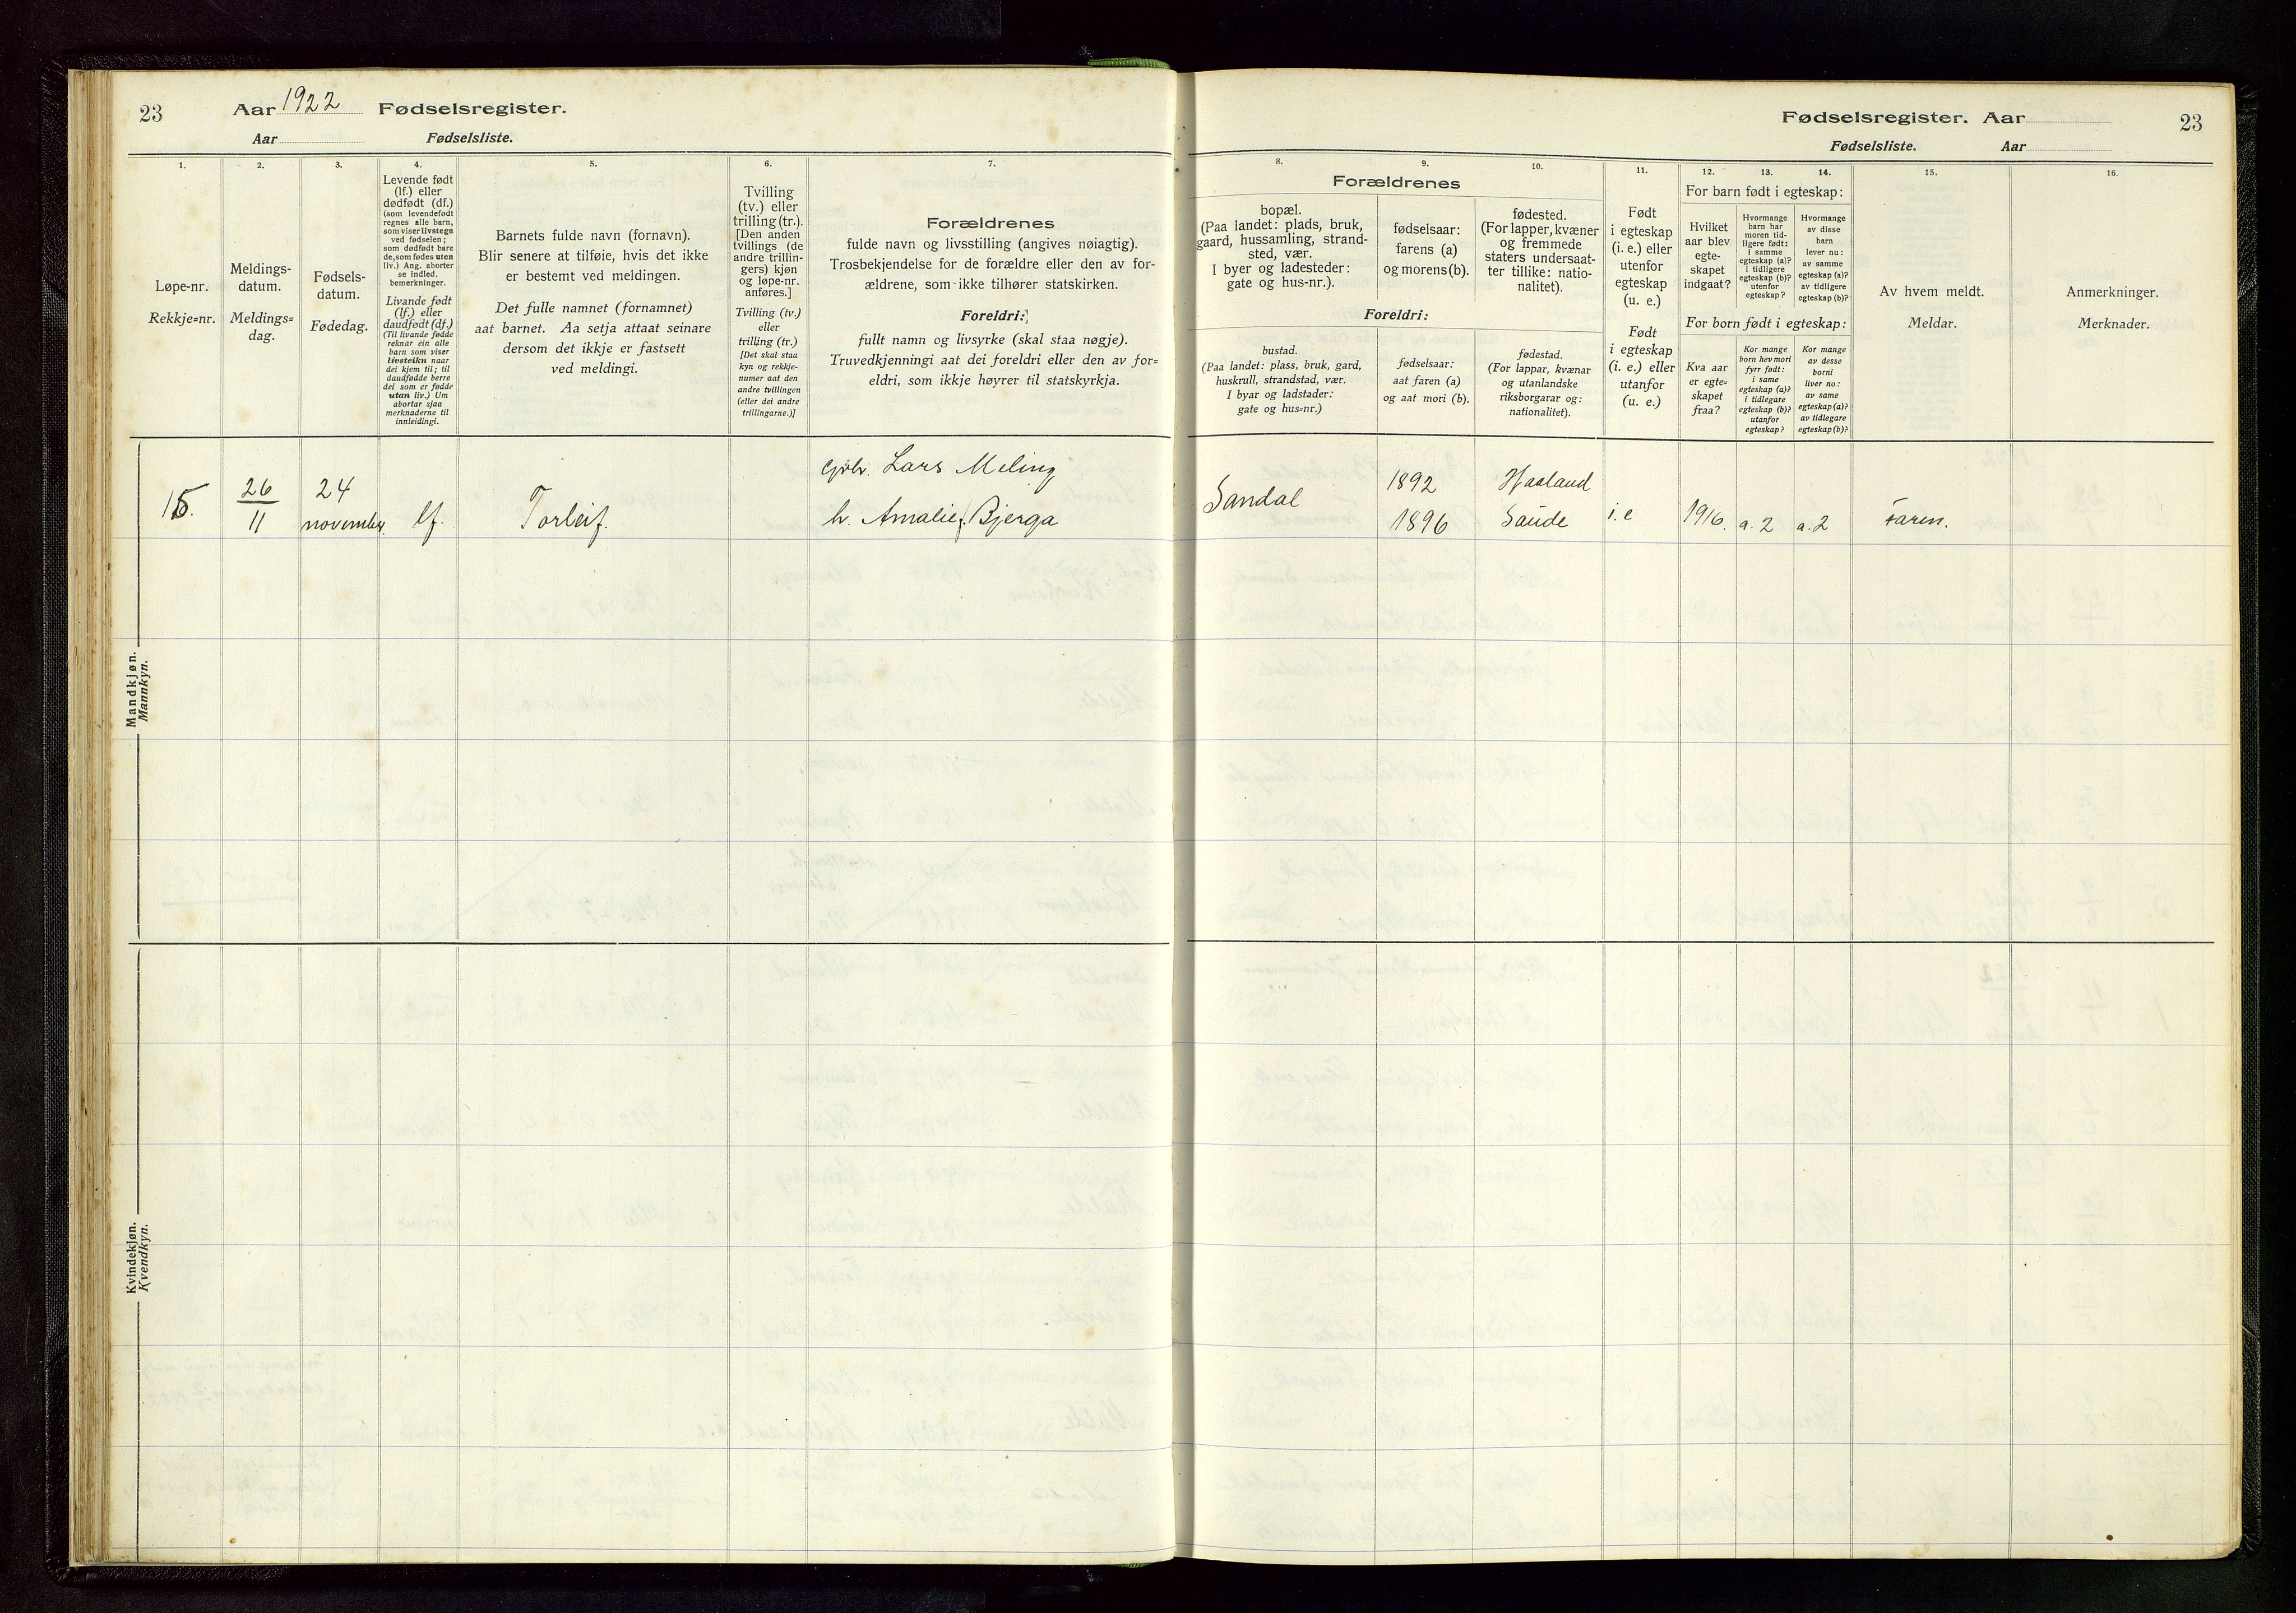 23
Aar 1922 Fødselsregister.
Aar Fødselsliste.
1.
2.
3.
4.
5.
6.
7.
Løpe-nr.
Rekkje=nr.
Meldings-
datum.
Meldings=
dag.
Fødsels-
datum.
Fødedag.
Levende født
(lf.) eller
dødfødt (df.)
(som levendefødt
regnes alle barn,
som viser livstegn
ved fødselen;
som dødfødt bare
de, som fødes uten
liv.) Ang. aborter
se indled.
bemerkninger.
Livande født
(lf.) eller
daudfødt (df.)
(Til livande fødde
reknar ein alle
barn som viser
livsteikn naar
dei kjem til; til
daudfødde berre
dei som er fødde
utan liv.) Um
abortar sjaa
merknaderne til
innleidingi.
Barnets fulde navn (fornavn).
Blir senere at tilføie, hvis det ikke
er bestemt ved meldingen.
Det fulle namnet (fornamnet)
aat barnet. Aa setja attaat seinare
dersom det ikkje er fastsett
ved meldingi.
Tvilling
(tv.) eller
trilling (tr.).
[Den anden
tvillings (de
andre trillin-
gers) kjøn
og løpe-nr.
anføres.]
Tvilling (tv.)
eller
trilling (tr.)
[Det skal staa
kyn og rekkje-
numer aat den
andre tvillingen
(eller dei andre
trillingarne.)]
Forældrenes
fulde navn og livsstilling (angives nøiagtig).
Trosbekjendelse for de forældre eller den av for-
ældrene, som ikke tilhører statskirken.
Foreldri:
fullt namn og livsyrke (skal staa nøgje).
Truvedkjenningi aat dei foreldri eller den av for=
eldri, som ikkje høyrer til statskyrkja.
Mandkjøn.
Mannkyn.
15.
26
11
24
november.
lf.
Torleif.
Lars Meling
h. Amalie f. Bjerga
Kvindekjøn.
Kvendkyn.
Fødselsregister. Aar
23
Fødselsliste. Aar
8.
9.
10.
11.
12.
13.
14.
15.
16.
Forældrenes
bopæl.
(Paa landet: plads, bruk,
gaard, hussamling, strand-
sted, vær.
I byer og ladesteder:
gate og hus-nr.).
fødselsaar:
farens (a)
og morens (b).
fødested.
(For lapper, kvæner
og fremmede
staters undersaat-
ter tillike: natio-
nalitet).
Foreldri:
bustad.
(Paa landet: plass, bruk, gard,
huskrull, strandstad, vær.
I byar og ladstader:
gate og hus=nr.)
fødselsaar:
aat faren (a)
og aat mori (b).
fødestad.
(For lappar, kvænar
og utanlandske
riksborgarar og:
nationalitet).
Født
i egteskap
(i. e.) eller
utenfor
egteskap
(u. e.)
Født
i egteskap
(i. e.) eller
utanfor
(u. e.)
For barn født i egteskap:
Hvilket
aar blev
egte-
skapet
indgaat?
Hvormange
barn har
moren tid-
ligere født:
i samme
egteskap (a)?
i tidligere
egteskap (b)?
utenfor
egteskap?
Hvormange
av disse
barn
lever nu:
av samme
egteskap (a)?
av tidligere
egteskap (b)?
For born født i egteskap:
Kva aar
er egte=
skapet
fraa?
Kor mange
born hev mori
fyrr født:
i same
egteskap (a)?
i tidlegare
egteskap (b)?
utanfor
egteskap?
Kor mange
av desse
borni
liver no:
av same
egteskap (a)?
av tidlegare
egteskap (b)?
Av hvem meldt.
Meldar.
Anmerkninger.
Merknader.
Sandal
1892
1896
Haaland
Saude
i. e
1916.
a. 2
a. 2
Faren.